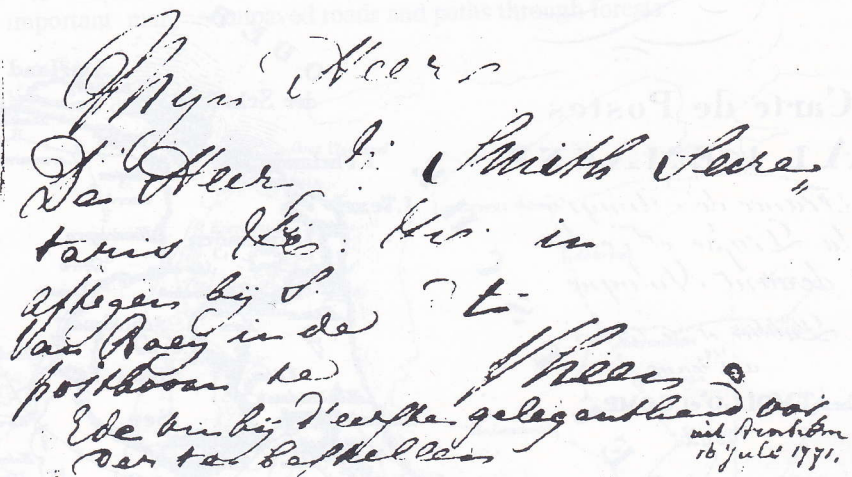 Myn Heer
De Heer J: Smith Secre„
taris &c: &c: in
aftegen by S
van Raey in de
posthoorn te t
Rheen
Ede om bij d'eerste gelegentheid voor
der te bestellen
uit Arnhem
16 Juli 1771.